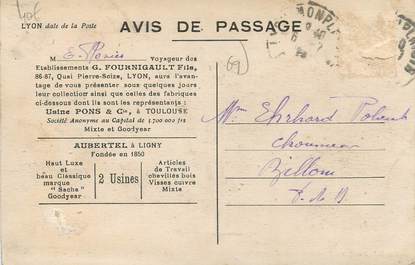 LYON date de la Poste
AVIS DE PASSAGE
M. Voyageur des
Etablissements G. FOURNIGAULT Fils,
86-87, Quai Pierre-Scize, LYON, aura l'avan-
tage de vous présenter sous quelques jours
leur collection ainsi que celles des fabriques
ci-dessous dont ils sont les représentants :
Usine PONS & Cie, à TOULOUSE
Société Anonyme au Capital de 1.700.000 frs
Mixte et Goodyear
AUBERTEL à LIGNY
Fondée en 1850
Haut Luxe
et
beau Classique
marque
"Sache"
Goodyear
2 Usines
Articles
de Travail
chevillés bois
Visses cuivre
Mixte
69
Ehrhard
Billom
P. d. D